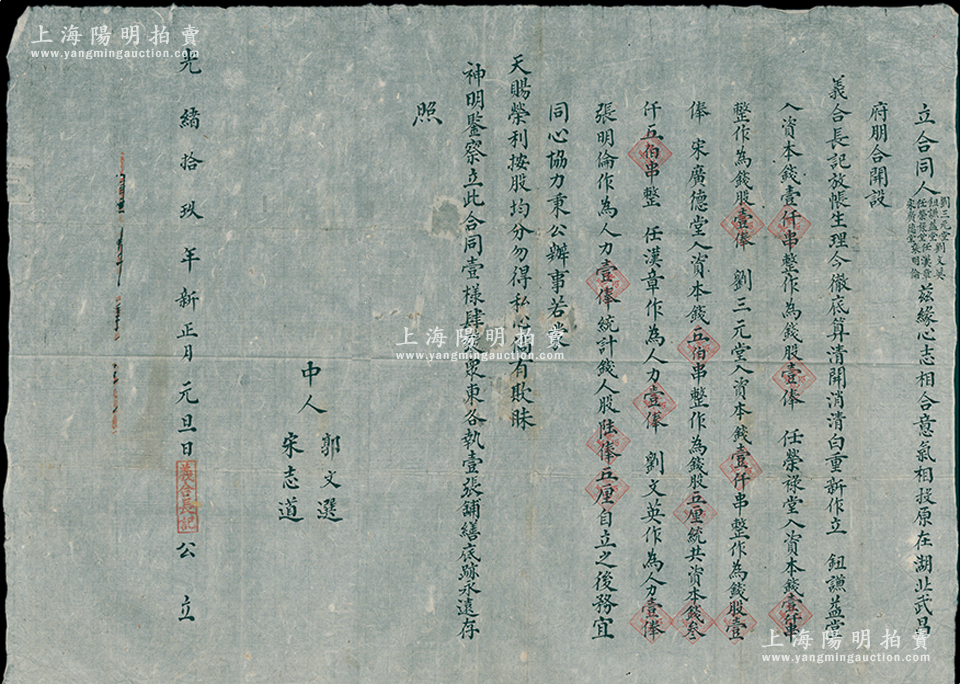 立合同人劉三元堂劉文英鈕謙益堂任漢章任榮祿堂張明倫宋廣德堂茲緣心志相合意氣相投原在湖北武昌
府朋合開設
義合長記放帳生理今徹底算清開消清白重新作立 鈕謙益堂
入資本錢壹仟串整作為錢股壹俸 任榮祿堂入資本錢壹仟串
整作為錢股壹俸 劉三元堂入資本錢壹仟串整作為錢股壹
俸 宋廣德堂入資本錢五伯串整作為錢股五厘統共資本錢叁
仟五伯串整 任漢章作為人力壹俸 劉文英作為人力壹俸
張明倫作為人力壹俸統計錢人股陸俸五厘自立之後務宜
同心協力秉公辦事若蒙
天賜榮利按股均分勿得私心尚有欺昧
神明鑒察立此合同壹樣肆張眾東各執壹張舖繕底跡永遠存
照
中人 郭文選
宋志道
光緒拾玖年新正月元旦日 義合長記 公立
上海陽明拍賣
www.yangmingauction.com
上海陽明拍賣
www.yangmingauction.com
上海陽明拍賣
www.yangmingauction.com